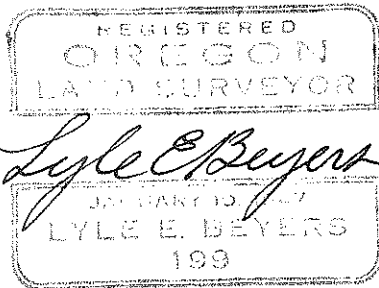 REGISTERED
OREGON
LAND SURVEYOR
Lyle E. Beyers
JANUARY 10,
LYLE E. BEYERS
199